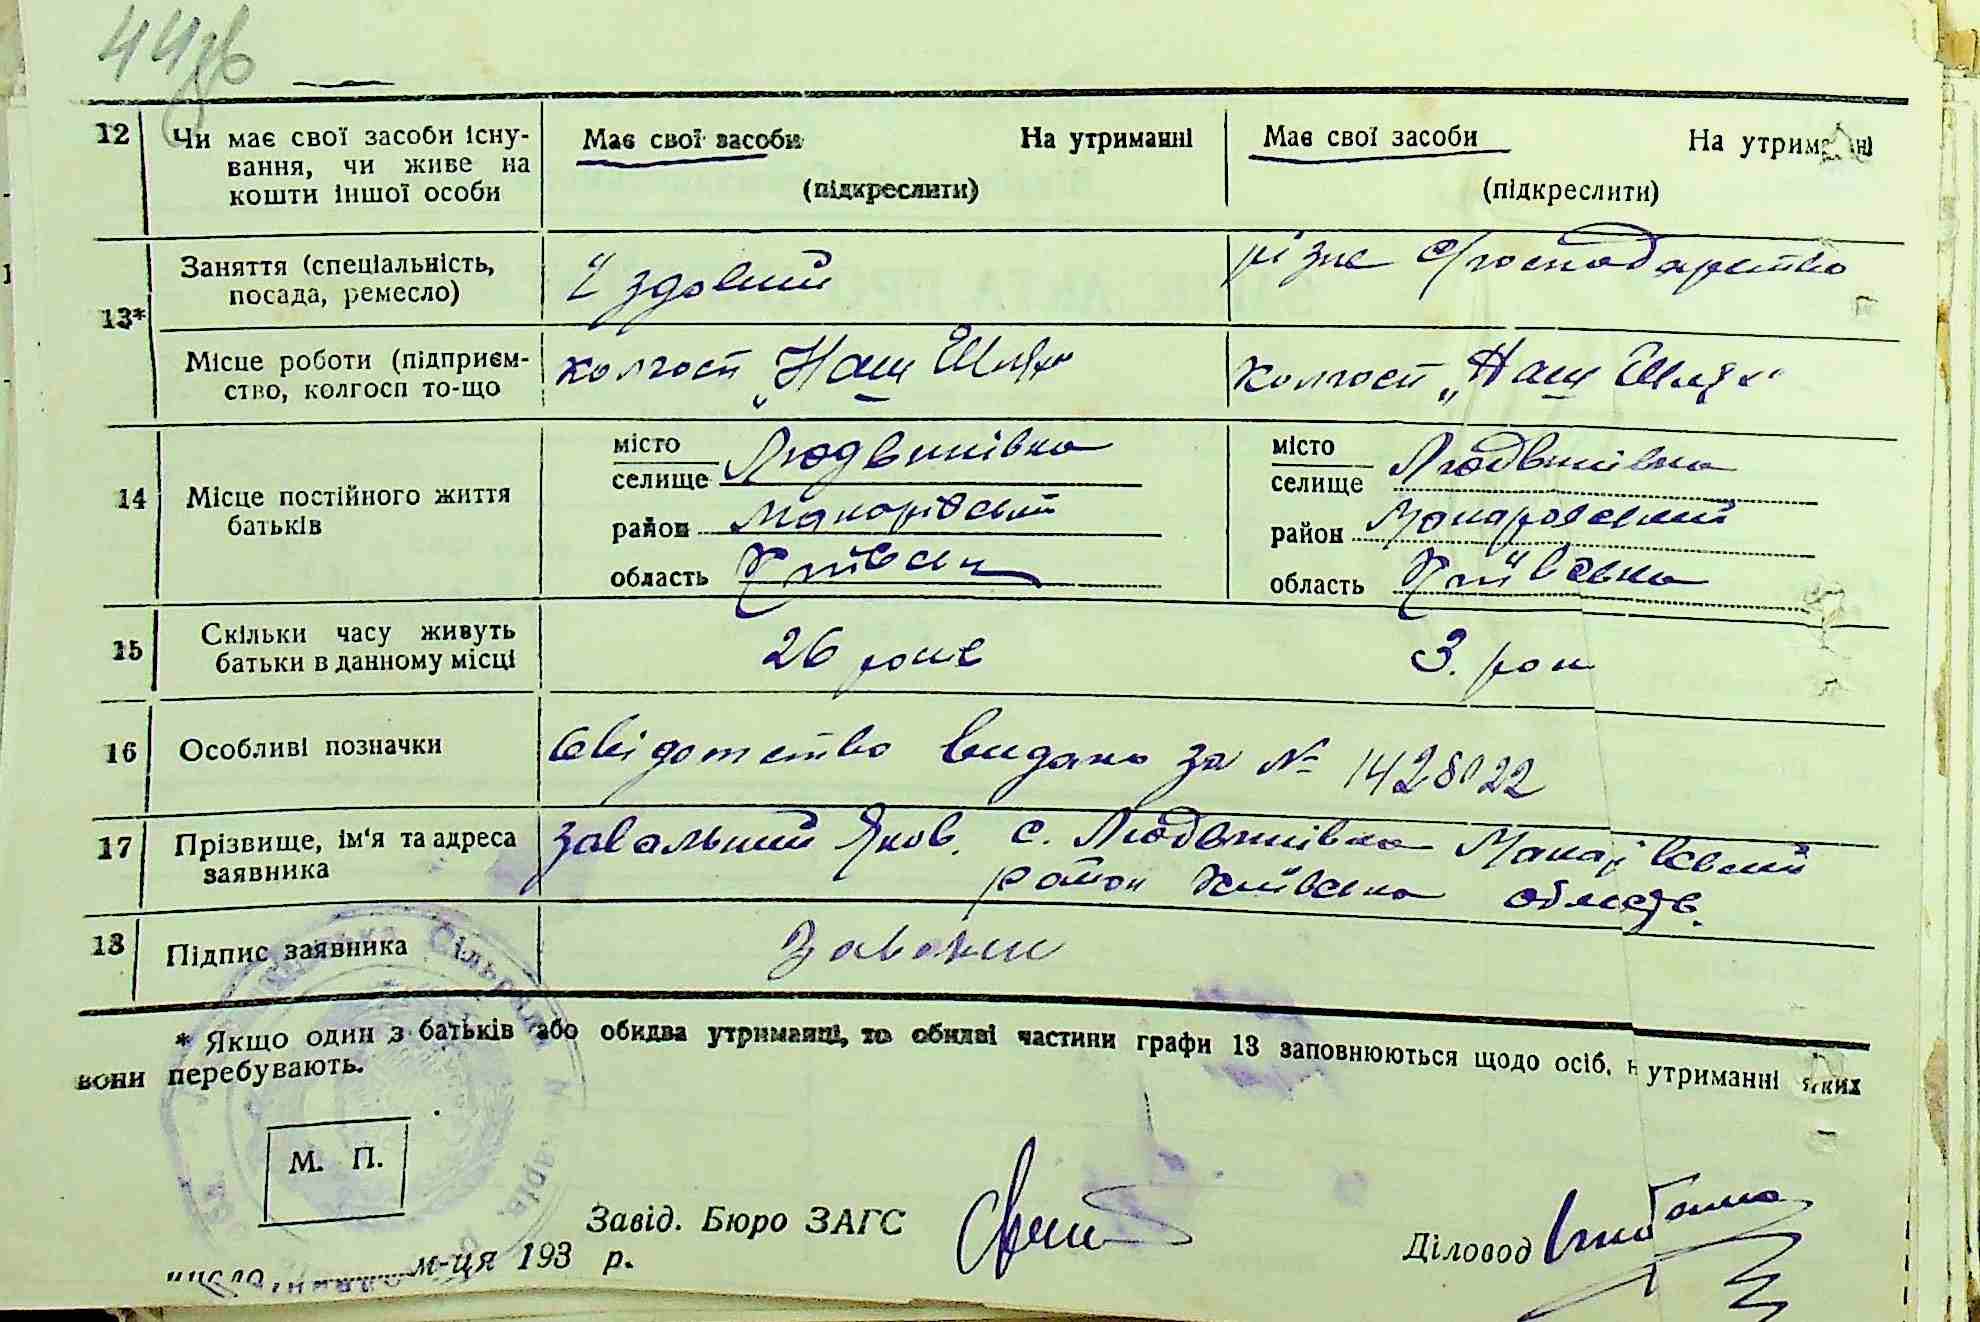 44зв
12 Чи має свої засоби існу-
вання, чи живе на
кошти іншої особи
Має свої засоби На утриманні
(підкреслити)
Має свої засоби На утриманні
(підкреслити)
13* Заняття (спеціальність,
посада, ремесло)
їздовий
різне с/господарство
Місце роботи (підприєм-
ство, колгосп то-що
колгосп „Наш Шлях"
колгосп „Наш Шлях"
14 Місце постійного життя
батьків
місто
селище Людвинівка
район Макарівський
область Київська
місто
селище Людвинівка
район Макаровский
область Київська
15 Скільки часу живуть
батьки в данному місці
26 років
3. роки
16 Особливі позначки
свідотство видано за № 1428022
17 Прізвище, ім'я та адреса
заявника
Завальний Яков. с. Людвинівка Макарівський
район Київська область.
18 Підпис заявника
* Якщо один з батьків або обидва утриманці, то обидві частини графи 13 заповнюються щодо осіб, н утриманні яких
вони перебувають.
М. П.
Завід. Бюро ЗАГС
Діловод
число м-ця 193 р.